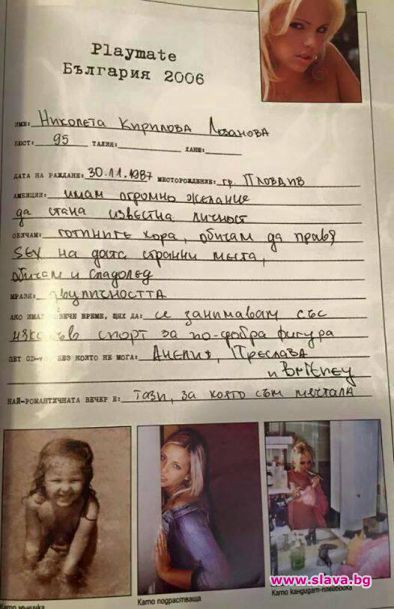 Playmate
България 2006
ИМЕ: Николета Кирилова Лозанова
БЮСТ: 95 ТАЛИЯ: ХАНШ:
ДАТА НА РАЖДАНЕ: 30.11.1987 МЕСТОРОЖДЕНИЕ: гр. Пловдив
АМБИЦИИ: имам огромно желание
да стана известна личност
ОБИЧАМ: готините хора, обичам да правя
SEX на доста странни места,
обичам и сладолед
МРАЗЯ: двуличността
АКО ИМАХ ПОВЕЧЕ ВРЕМЕ, ЩЯХ ДА: се занимавам със
някакъв спорт за по-добра фигура
БЕЗ КОЯТО НЕ МОГА: Анелия, Преслава
и Britney
НАЙ-РОМАНТИЧНАТА ВЕЧЕР Е: Тази, за която съм мечтала
Като мъничка
Като подрастваща
Като кандидат-плеймейтка
www.slava.bg